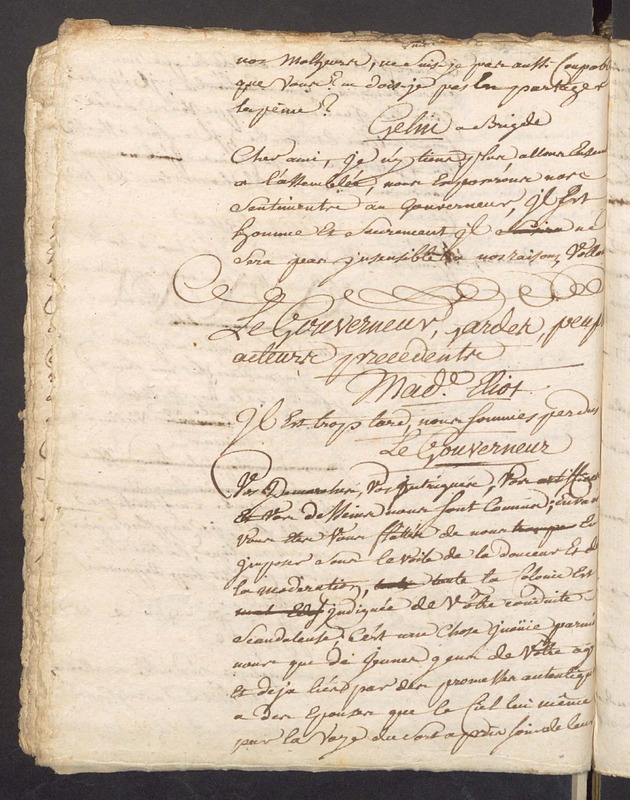 nos malheurs, ne suis-je pas aussi Coupable
que Vous? ne dois-je pas En partager
la peine?
Gelin a Brigde
Cher ami, je n'y tiens plus allons Ensem
a l'assemblée, nous Exposerons nos
Sentiments au Gouverneur, il Est
homme Et Seurement il ne
Sera pas insensible a nos raisons
Le Gouverneur, gardes, peupl
acteurs precedents
Mad.e Eliot
il Est trop tard, nous sommes perdus
Le Gouverneur
Vos Demarches, Vos intrigues, Vos artifices
Et Vos desseins nous sont Connus; En vain
Vous etes Vous flattés de nous En
imposer sous le voile de la douceur Et de
la moderation, toute la Colonie Est
indignée de Vôtre Conduite
Scandaleuse, C'est une Chose inouïe parmi
nous que de jeunes gens de Vôtre age
Et deja liés par des promesses autentiqu
a des Epouses que le Ciel lui même
par la Voye du Sort a pris soin de leur